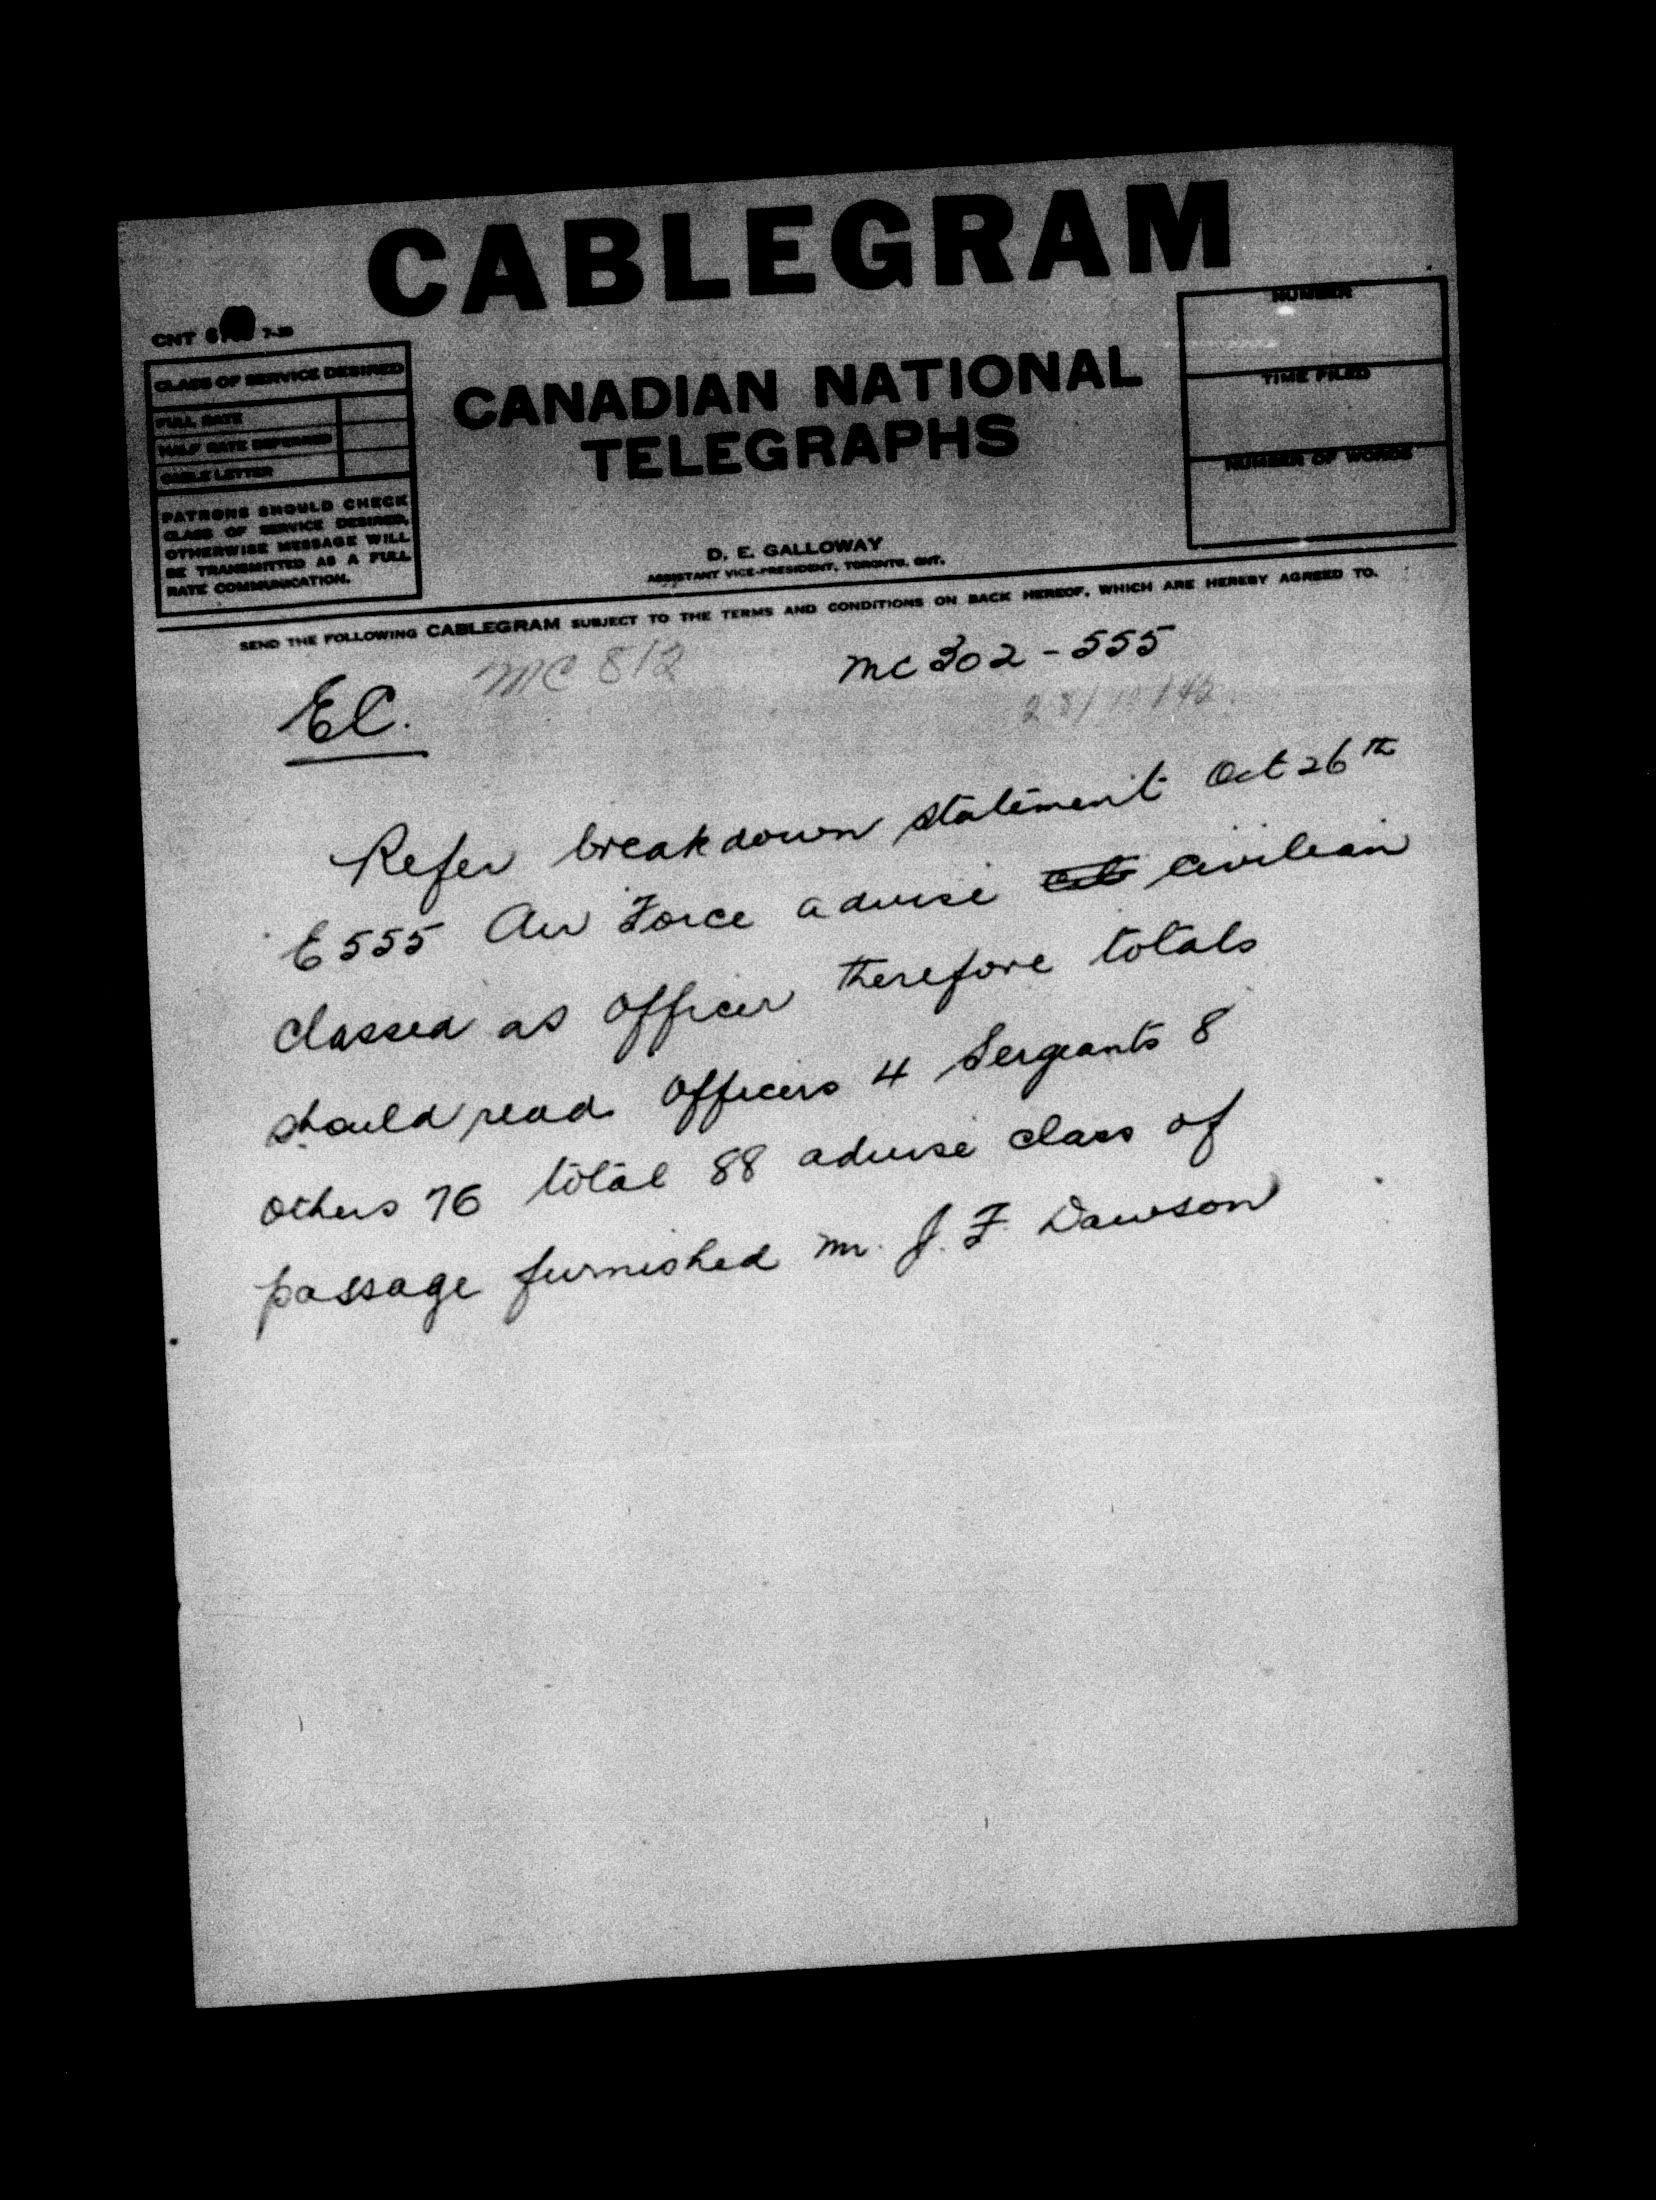 CABLEGRAM
CANADIAN NATIONAL
TELEGRAPHS
D. E. GALLOWAY
ASSISTANT VICE-PRESIDENT, TORONTO, ONT.
CNT
CLASS OF SERVICE DESIRED
FULL RATE
HALF RATE DEFERRED
CABLE LETTER
PATRONS SHOULD CHECK
CLASS OF SERVICE DESIRED,
OTHERWISE MESSAGE WILL
BE TRANSMITTED AS A FULL
RATE COMMUNICATION.
NUMBER
TIME FILED
NUMBER OF WORDS
SEND THE FOLLOWING CABLEGRAM SUBJECT TO THE TERMS AND CONDITIONS ON BACK HEREOF, WHICH ARE HEREBY AGREED TO.
MC 812
MC 302 - 555
EC.
Refer breakdown statement Oct 26th
E555 Air Force advise civilian
classed as officer therefore totals
should read officers 4 Sergeants 8
others 76 total 88 advise class of
passage furnished Mr. J. F. Dawson